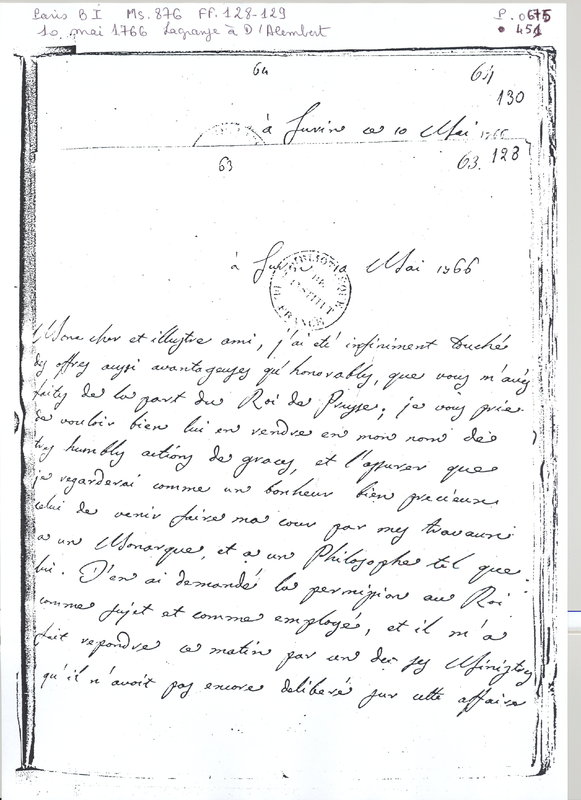 Paris B I Ms. 876 FF. 128-129
P. 0675
10 mai 1766 Lagrange à D'Alembert
• 451
64
64
130
à Turin ce 10 Mai 1766
63
63. 128
à Turin 10 Mai 1766
BIBLIOTHEQUE DE L'INSTITUT FRANCE
Mon cher et illustre ami, j'ai été infiniment touché
des offres aussi avantageuses qu'honorables, que vous m'avés
faites de la part du Roi de Prusse; je vous prie
de vouloir bien lui en rendre en mon nom de
tres humbles actions de graces, et l'assurer que
je regarderai comme un bonheur bien precieux
celui de venir faire ma cour par mes travaux
a un Monarque, et a un Philosophe tel que
lui. J'en ai demandé la permission au Roi
comme sujet et comme employé, et il m'a
fait repondre ce matin par un de ses Ministres
qu'il n'avoit pas encore deliberé sur cette affaire